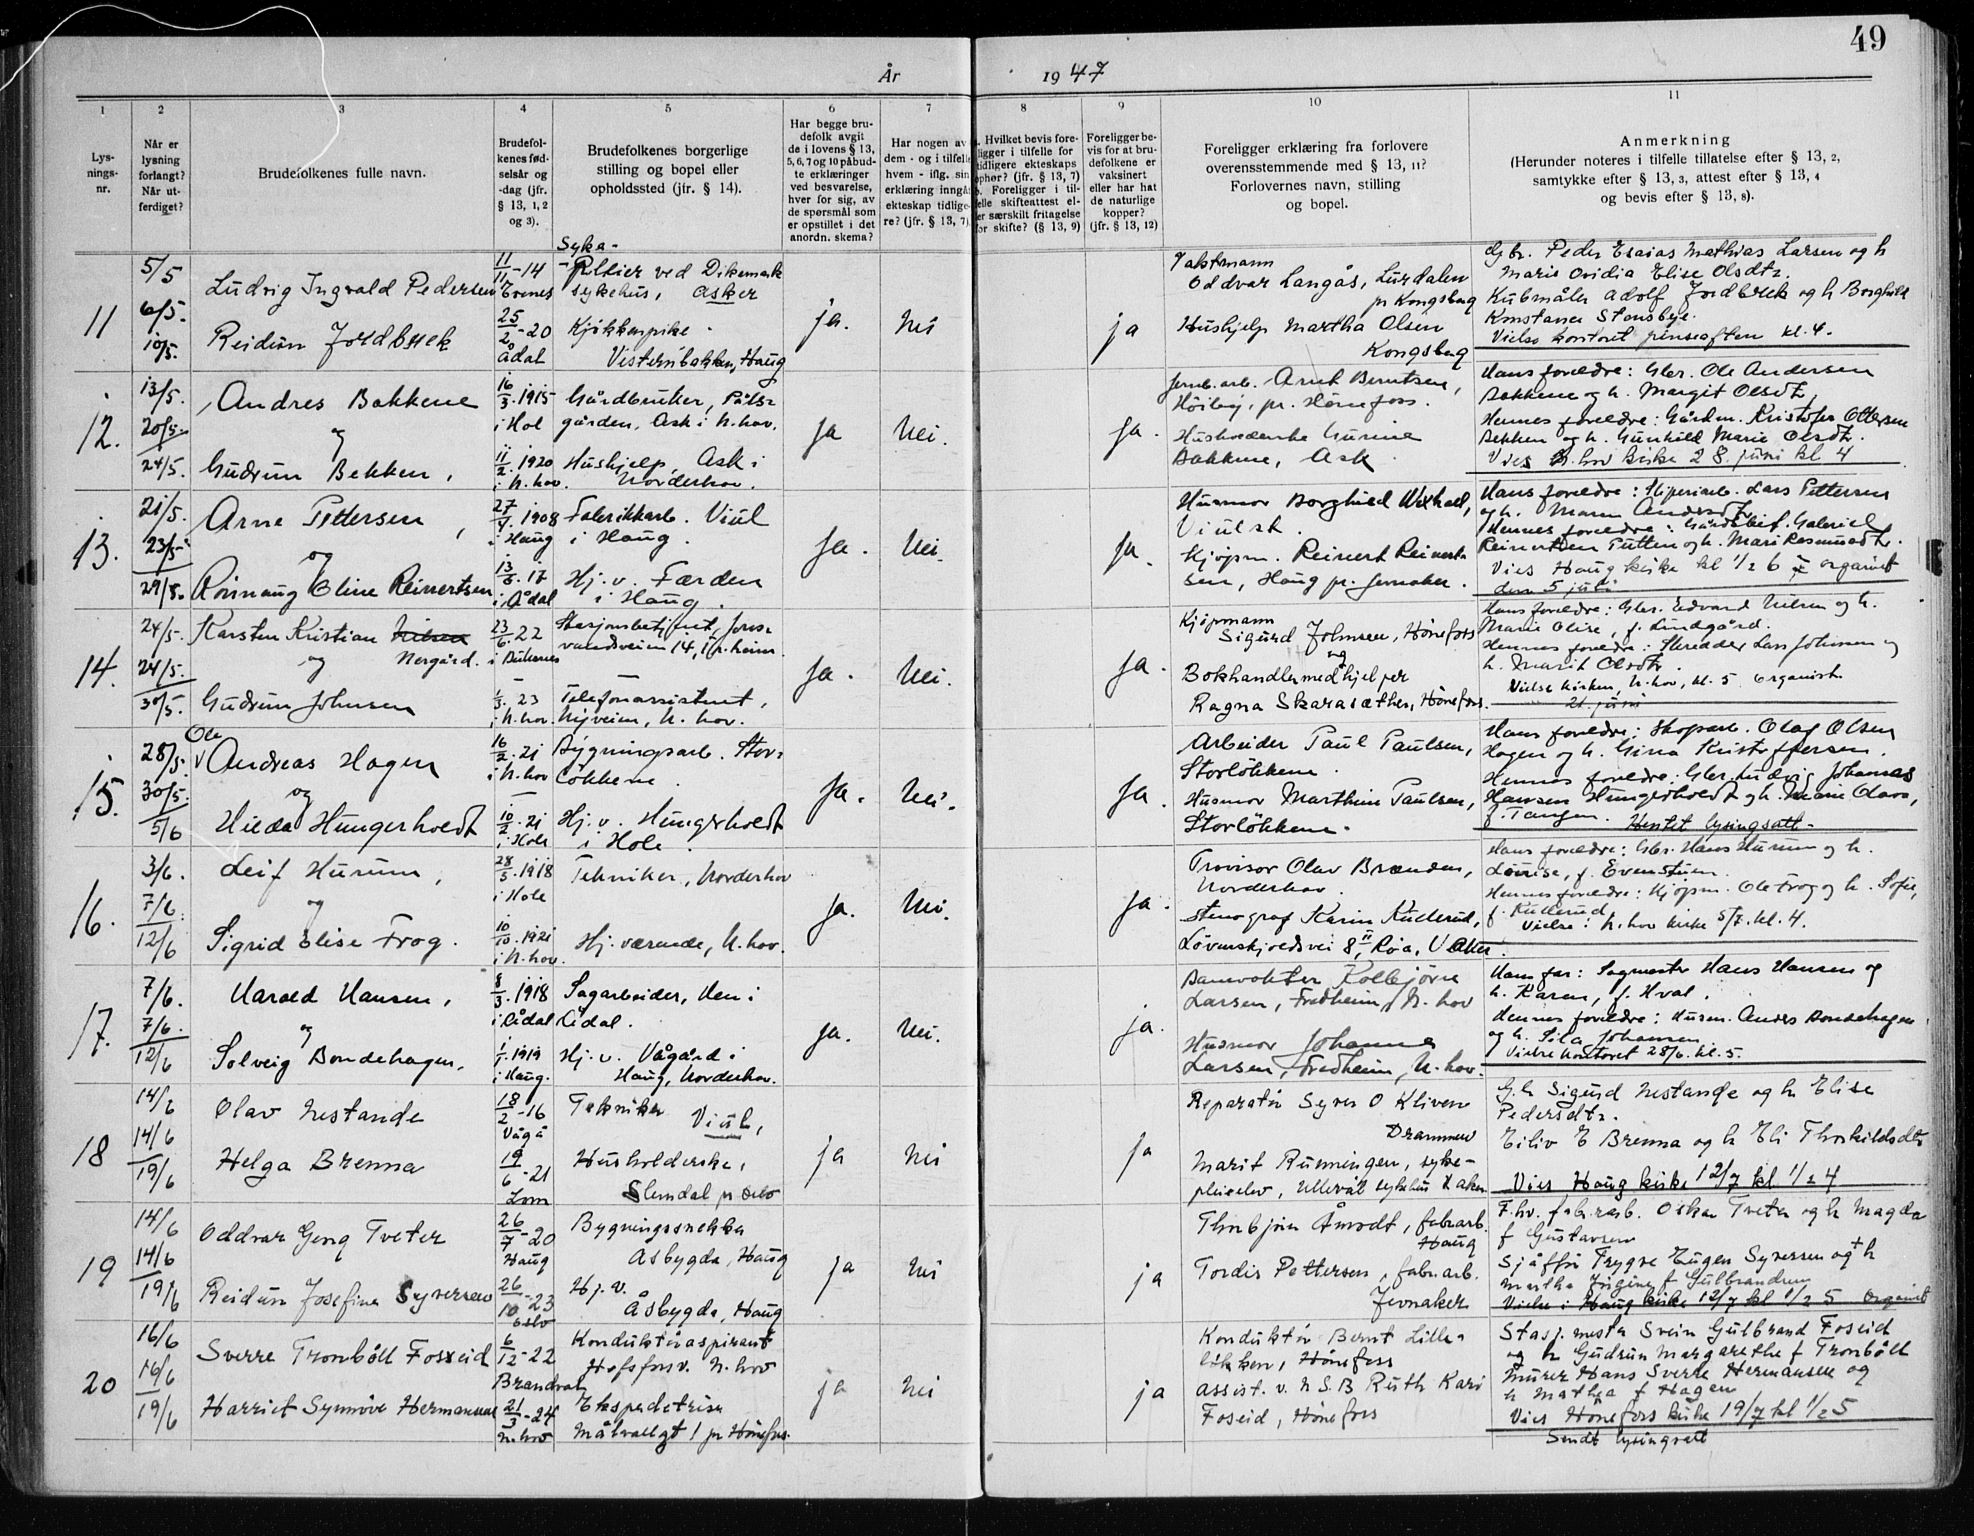 49
År 1947
1 2 3 4 5 6 7 8 9 10 11
Lys-
nings-
nr.
Når er
lysning
forlangt?
Når ut-
ferdiget?
Brudefolkenes fulle navn.
Brudefol-
kenes fød-
selsår og
-dag (jfr.
§ 13, 1, 2
og 3).
Brudefolkenes borgerlige
stilling og bopel eller
opholdssted (jfr. § 14).
Har begge bru-
defolk avgit
de i lovens § 13,
5, 6, 7 og 10 påbud-
te erklæringer
ved besvarelse,
hver for sig, av
de spørsmål som
er opstillet i det
anordn. skema?
Har nogen av
dem - og i tilfelle
hvem - iflg. sin
erklæring inngå
ekteskap tidlige-
re? (jfr. § 13, 7)
Hvilket bevis fore-
ligger i tilfelle for
tidligere ekteskaps
ophør? (jfr. § 13, 7)
Foreligger i til-
felle skifteattest el-
er særskilt fritagelse
for skifte? (§ 13, 9)
Foreligger be-
vis for at bru-
defolkene er
vaksinert
eller har hat
de naturlige
kopper?
(jfr. § 13, 12)
Foreligger erklæring fra forlovere
overensstemmende med § 13, 11?
Forlovernes navn, stilling
og bopel.
Anmerkning
(Herunder noteres i tilfelle tillatelse efter § 13, 2,
samtykke efter § 13, 3, attest efter § 13, 4
og bevis efter § 13, 8).
11
5/5
6/5.
10/5.
Ludvig Ingvald Pedersen
Reidun Jordbrek
11/11-14
Evenes
25/2-20
Ådal
Syke-
pleier ved Dikemark
sykehus, Asker
Kjøkkenpike
Visternbakken, Haug
ja.
Nei
ja
Vaktmann
Oddvar Langås, Lurdalen
pr Kongsberg
Hushjelp Martha Olsen
Kongsberg
Gbr. Peder Esaias Mathias Larsen og h
Marie Ovidia Elise Olsdtr.
Kubmåler Adolf Jordbrek og h Borghild
Konstanse Stensbye.
Vielse kontoret pinseaften kl. 4.
12.
13/5.
20/5.
24/5.
Andres Bakkene
og
Gudrun Bekken,
16/3.1915
i Hol
11/2.1920
i N. hov.
Gårdbruker, Påls-
gården, Ask i N. hov.
Hushjelp, Ask i
Norderhov.
Ja
Nei.
Ja.
Jernb. arb. Arnt Berntsen,
Høiby, pr. Hønefoss.
Husholderske Gurine
Bakkene, Ask
Hans foreldre: Gbr. Ole Andersen
Bakkene og h. Margit Olsdtr.
Hennes foreldre: Gårdm. Kristofer Ottersen
Bekken og h. Gunhild Marie Olsdtr.
Vies N. hov kirke 28. juni kl 4
13.
21/5.
23/5.
29/8.
Arne Pettersen,
og
Rønnaug Eline Reinertsen
27/4.1908
i Haug
13/6.17
i Ådal
Fabrikkarb. Viul
i Haug.
Hj. v. Færden
i Haug.
Ja.
Nei.
Ja.
Husmor Borghild Wexhall,
Viulst.
Kjøpm. Reinert Reinert-
sen, Haug pr. Jevnaker.
Hans foreldre: Sliperiarb. Lars Pettersen
og h. Maren Andersdtr.
Hennes foreldre: Gårdbest. Gabriel
Reinertsen Putten og h. Mari Rasmusdtr.
Vies Haug kirke kl 1/2 6 organist
den 5 juli
14.
24/5.
24/5.
30/5.
Karsten Kristian Nilsen
og Nergård.
Gudrun Johnsen
23/6.22
i Buksnes
1/3.23
i N. hov.
Stasjonsbetjent, Jons-
vandsveien 14, Tr. heim
Telefonassistent,
Nyveien, N. hov.
Ja.
Nei.
Ja.
Kjøpmann
Sigurd Johnsen, Hønefoss
og
Bokhandlermedhjelper
Ragna Skarasæther, Hønefoss.
Hans foreldre: Gbr. Edvard Nilsen og h.
Marie Olise, f. Lindgård.
Hennes foreldre: Skredder Lars Johnsen og
h. Marit Olsdtr.
Vielse kirken, N. hov, kl. 5 organist
21. juni
15.
28/5.
30/5.
5/6
Ole
Andreas Hagen
og
Hilda Hungerholdt
16/2.21
i N. hov
10/2.21
i Hole
Bygningsarb. Stor-
løkkene.
Hj. v. Hungerholdt
i Hole.
Ja.
Nei.
Ja.
Arbeider Paul Paulsen,
Storløkkene.
Husmor Marthine Paulsen,
Storløkkene.
Hans foreldre: Skogarb. Olaf Olsen
Hagen og h. Gina Kristoffersen.
Hennes foreldre: Gbr. Ludvig Johannes
Hansen Hungerholdt og h. Marie Olava,
f. Tangen. Hentet lysingsatt.
16.
3/6.
7/6.
12/6
Leif Hurum,
og
Sigrid Elise Frog.
28/5.1918
i Hole
10/10.1921
i N. hov.
Tekniker, Norderhov
Hj. værende, N. hov.
Ja.
Nei.
Ja.
Provisor Olav Brænden,
Norderhov.
Stenograf Karin Kullerud,
Løvenskjoldsvei 8 II, Røa, V. Aker.
Hans foreldre: Gbr. Hans Hurum og h.
Lovise, f. Evenstuen.
Hennes foreldre: Kjøpm. Ole Frog og h. Sofie,
f. Kullerud.
Vielse: N. hov kirke 5/7. kl. 4.
17.
7/6.
7/6.
12/6
Harald Hansen,
og
Solveig Bondehagen,
8/3.1918
i Ådal
1/1.1919
i Haug.
Sagarbeider, Hen i
Ådal.
Hj. v. Vågård i
Haug, Norderhov.
Ja.
Nei.
ja.
Banevokter Kolbjørn
Larsen, Fredheim, N. hov
Husmor Johanne
Larsen, Fredheim, N. hov.
Hans far: Sagmester Hans Hansen og
h. Karen, f. Hval.
Hennes foreldre: Husm. Anders Bondehagen
og h. Sila Johansen
Vielse kontoret 28/6. kl. 5.
18
14/6
14/6
19/6
Olav Nestande
Helga Brenna
18/2-16
Vågå
19/6-21
Lom
Tekniker
Viul,
Husholderske,
Slemdal pr Oslo
ja
Nei
ja
Reparatør Syver O Kliven
Drammen
Marit Runningen, syke-
pleieelev, Ullevål sykehus V aker
G.b. Sigurd Nestande og h Elise
Pedersdtr.
Eiliv E Brenna og h Eli Thorkildsdtr
Vies Haug kirke 12/7 kl 1/2 4
19
14/6
14/6
19/6
Oddvar Georg Tveter
Reidun Josefine Syversen
26/7-20
Haug
26/10-23
Oslo
Bygningssnekker
Åsbygda, Haug
Hj. v.
Åsbygda, Haug
ja
Nei
ja
Thorbjørn Åmodt, fabr.arb.
Haug
Tordis Pettersen, fabr.arb.
Jevnaker
F.hv. fabr.arb. Oskar Tveter og h Magda
f Gustavsen
Sjåffør Trygve Eugen Syversen og + h
Martha f Gulbrandsen
Vielse i Haug kirke 12/7 kl 1/2 5 Organist
20
16/6
16/6
19/6
Sverre Trombøll Fosseid
Harriet Synnøve Hermansen
6/12-22
Brandval
21/3-24
N. hov
Konduktøraspirant
Hofsfoss v. N. hov
Ekspeditrise
Målvollgt 1 pr Hønefoss.
ja
Nei
ja
Konduktør Bernt Lille-
løkken, Hønefoss
Assist. v. N S.B Ruth Kari
Foseid, Hønefoss
Stasj. mester Svein Gulbrand Foseid
og h Gudrun Margarethe f Trombøll
Murer Hans Sverre Hermansen og
h Mathea f Hagen
Vies Hønefoss kirke 19/7 kl 1/2 5
Sendt lysingsatt